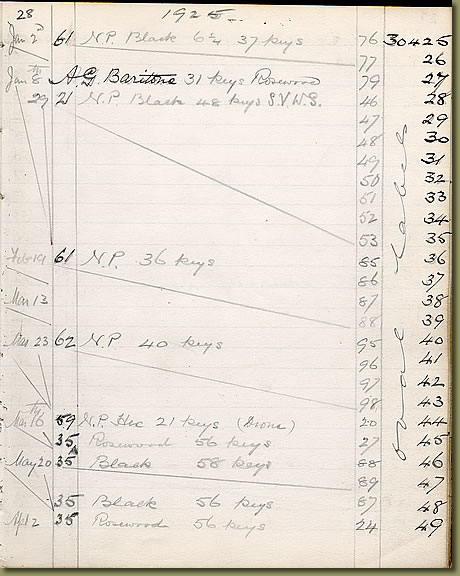 28 1925
Jan 2nd 61 N.P. Black 6¼ 37 keys 76 30425
77 26
Jan 8th A G Baritone 31 keys Rosewood 79 27
29 21 N.P. Black 48 keys S.V.W.S. 46 28
47 29
48 30
49 31
50 32
51 33
52 34
53 35
Feb 19 61 N.P. 36 keys 85 36
86 37
Mar 13 87 38
88 39
Mar 23 62 N.P. 40 keys 95 40
96 41
97 42
98 43
Mar 16th 59 N.P. Hec 21 keys (Drone) 20 44
35 Rosewood 56 keys 27 45
May 20 35 Black 58 keys 88 46
89 47
35 Black 56 keys 87 48
Apl 2 35 Rosewood 56 keys 24 49
oval labels